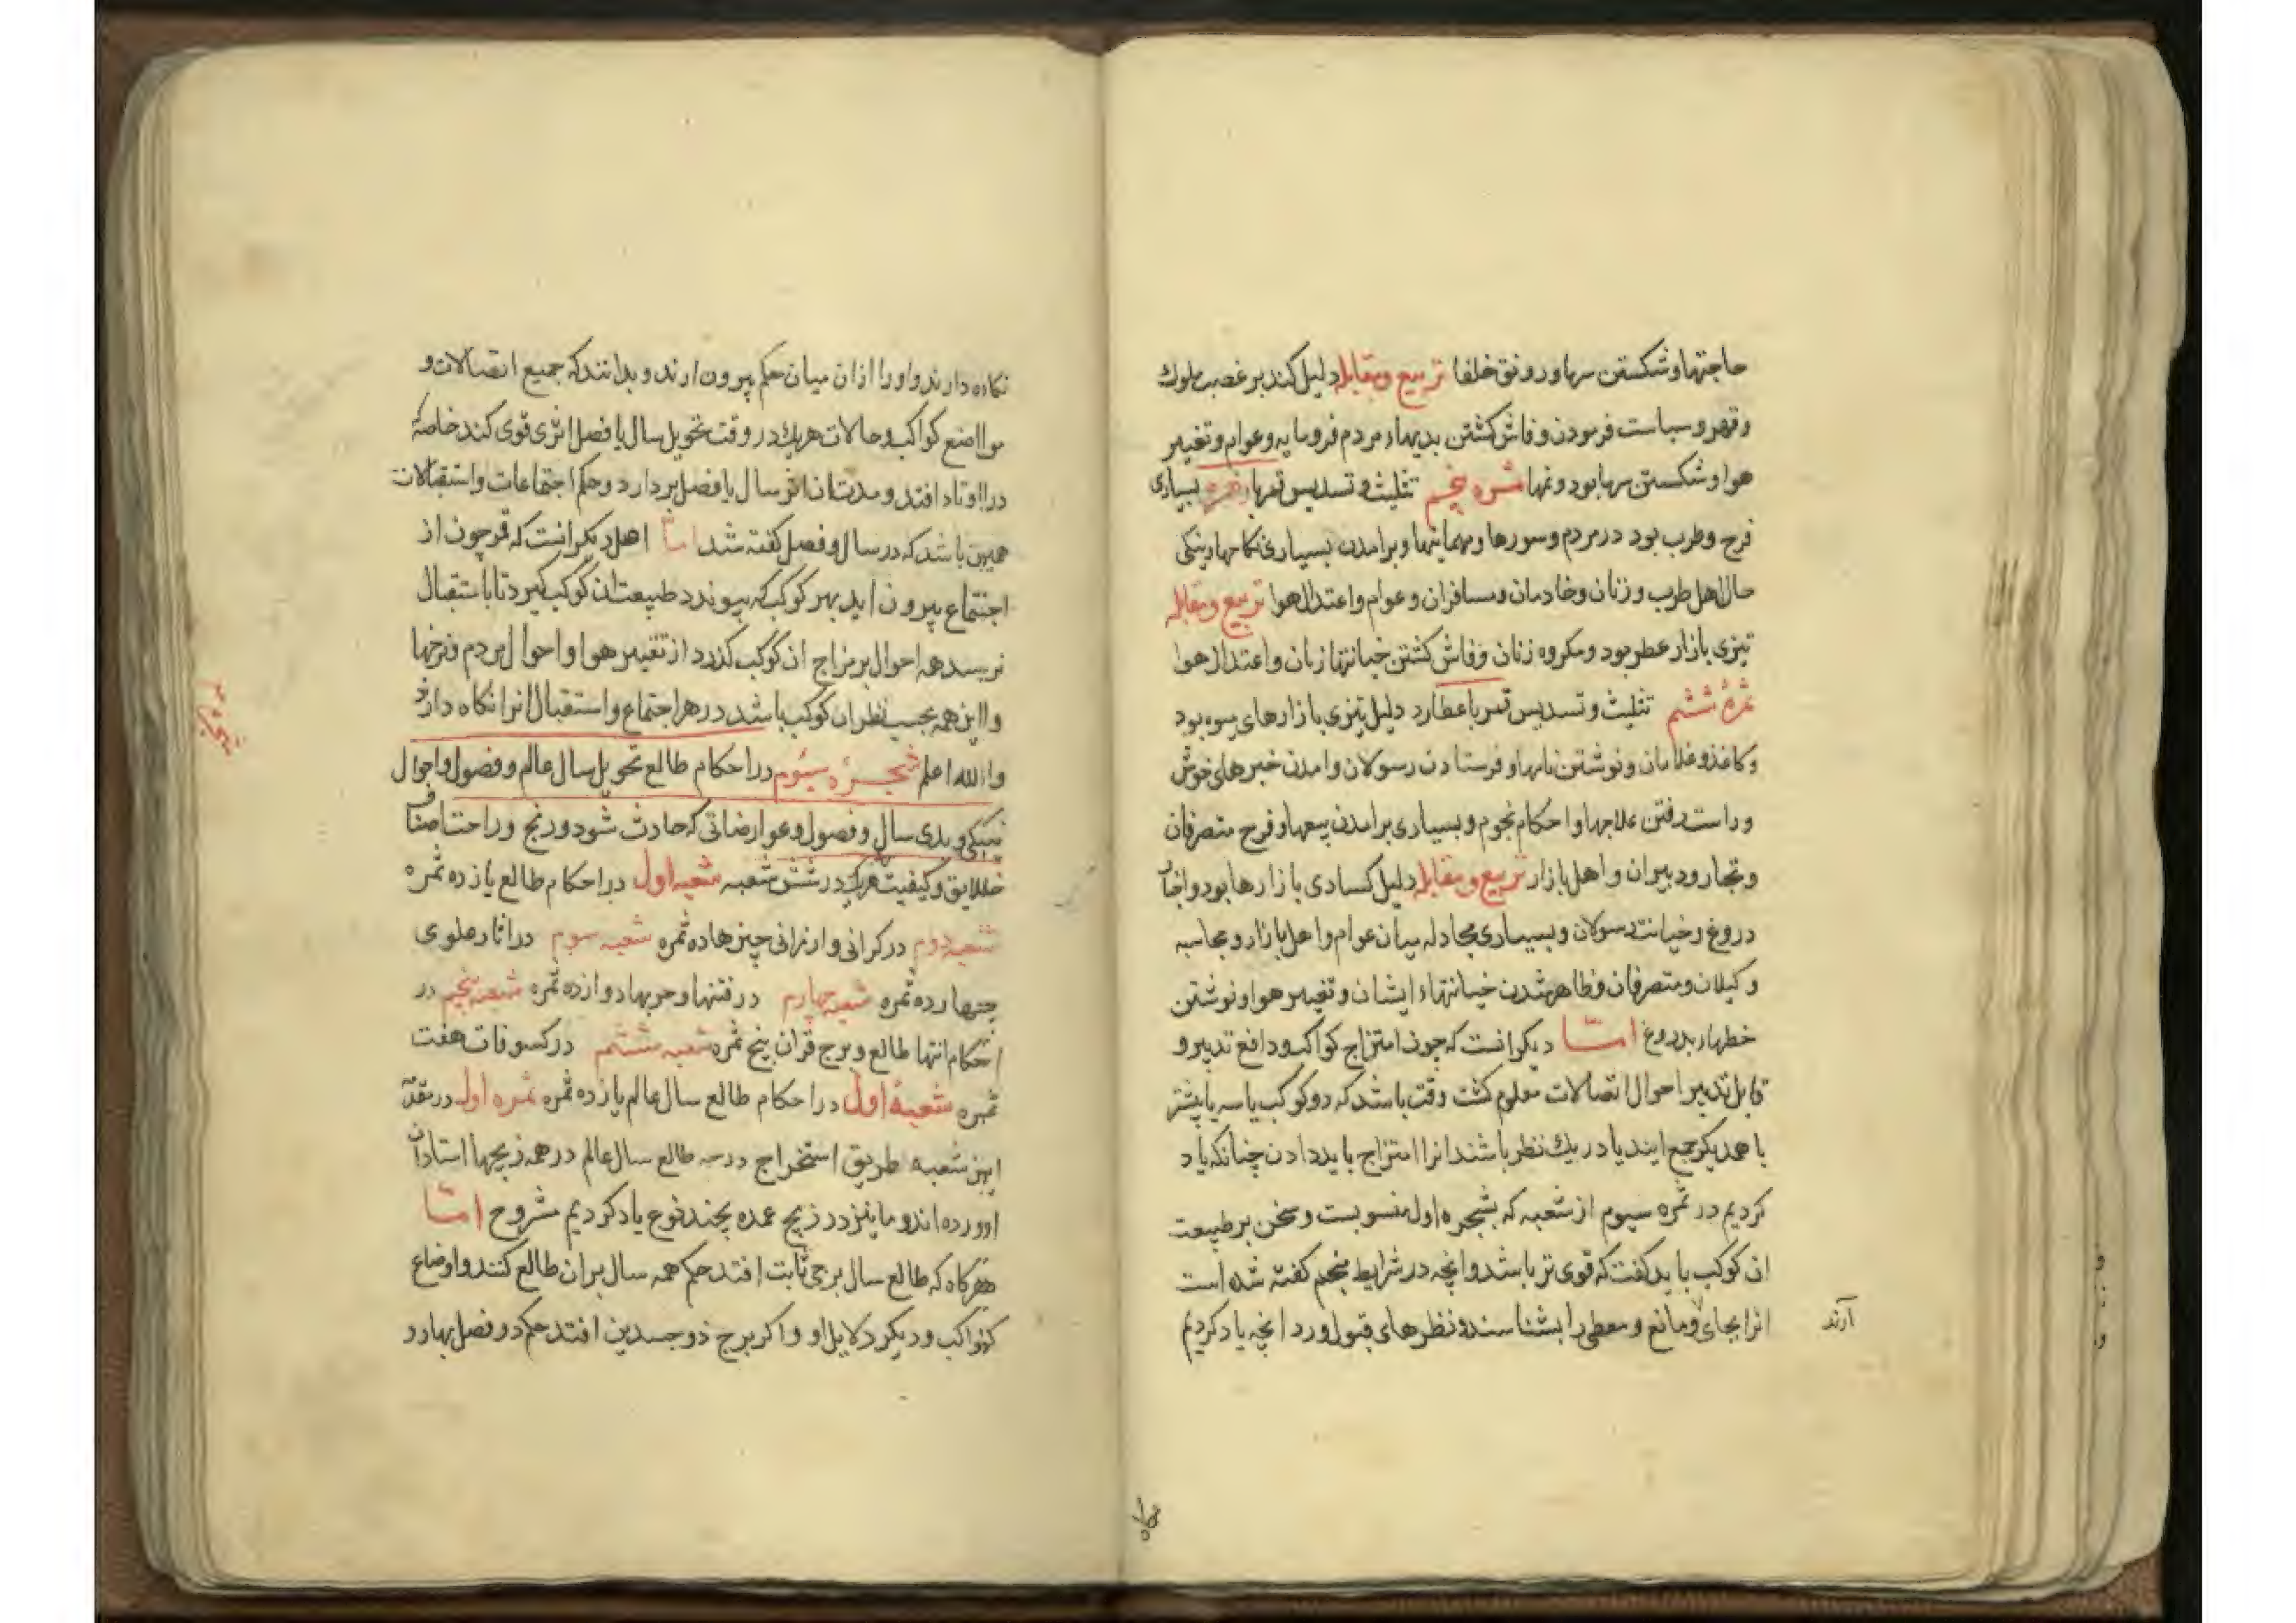 حاجتها و شکستن سرما و رونق خلفا تربیع و مقابله دلیل کند بر غضب ملوک
و قهر و سیاست فرمودن و فاش کشتن بدیهاء مردم فرومایه و عوام و تغییر
هوا و شکستن سرما بود و نمها ثمره پنجم تثلیث و تسدیس قمر با زهره بسیاری
فرح و طرب بود در مردم و سورها و مهمانیها و برامدن بسیاری نکاحها و نیکی
حال اهل طرب و زنان و خادمان و مسافران و عوام و اعتدال هوا تربیع و مقابله
تیزی بازار عطر بود و مکروه زنان و فاش کشتن خیانتها زنان و اعتدال هوا
ثمرهٔ ششم تثلیث و تسدیس قمر با عطارد دلیل تیزی بازارهای میوه بود
و کاغذ و غلامان و نوشتن نامها و فرستادن رسولان و امدن خبرهای خوش
و راست رفتن علاجها و احکام نجوم و بسیاری برامدن بیعها و فرح متصرفان
و تجار و دبیران و اهل بازار تربیع و مقابله دلیل کسادی بازارها بود و اخبار
دروغ و خیانت رسولان و بسیاری مجادله میان عوام و اهل بازار و محاسبه
وکیلان و متصرفان و ظاهر شدن خیانتهاء ایشان و تغییر هوا و نوشتن
خطهاء بدروغ امّا دیکر انست که چون امتزاج کواکب و دافع تدبیر و
قابل تدبیر احوال اتصالات معلوم کشت وقت باشد که دو کوکب یا سه یا بیشتر
با همدیکر جمع ایند یا در یک نظر باشند انرا امتزاج باید دادن چنانکه یاد
کردیم در ثمره سیوم از شعبه که بشجره اول منسوبست و سخن بر طبیعت
ان کوکب باید کفت که قوی تر باشد و انچه در شرایط منجم کفته شده است
انرا بجای و مانع و معطی را بشناسند و نظرهای قبول و رد انچه یاد کردیم
آرند
نکاه دارند و او را از ان میان حکم بیرون ارند و بدانند که جمیع اتصالات و
مواضع کواکب و حالات هریک در وقت تحویل سال یا فصل اثری قوی کند خاصهٔ
در اوتاد افتد و مدت ان اثر سال یا فصل بردارد و حکم اجتماعات و استقبالات
همین باشد که در سال و فصل کفته شد امّا اهل دیکر انست که قمر چون از
اجتماع بیرون اید بهر کوکب که بپیوندد طبیعت ان کوکب کیرد تا باستقبال
نرسد همه احوال بر مزاج ان کوکب کذرد از تغییر هوا و احوال مردم و نرخها
و این همه بحسب نظر ان کوکب باشد در هر اجتماع و استقبال انرا نکاه دارند
والله اعلم شجرهٔ سیوم در احکام طالع تحویل سال عالم و فصول و احوال
نیکی و بدی سال و فصول و عوارضاتی که حادث شود و رنج و راحت اصناف
خلایق و کیفیت هریک در شش شعبه شعبه اول در احکام طالع یازده ثمره
شعبه دوم در کرانی و ارزانی چیزها ده ثمره شعبه سوم در اثار علوی
چهارده ثمره شعبه چهارم در فتنها و حربها دوازده ثمره شعبه پنجم در
احکام انتها طالع و برج قران پنج ثمره شعبه ششم در کسوفات هفت
ثمره شعبهٔ اول در احکام طالع سال عالم یازده ثمره ثمره اول در مقدمه
این شعبه طریق استخراج درجه طالع سال عالم در همه زیجها استادان
اورده اند و ما نیز در زیج عمده بچند نوع یاد کردیم مشروح امّا
هرکاه که طالع سال برجی ثابت افتد حکم همه سال بران طالع کنند و اوضاع
کواکب و دیکر دلایل او و اکر برج ذو جسدین افتد حکم دو فصل بهار و